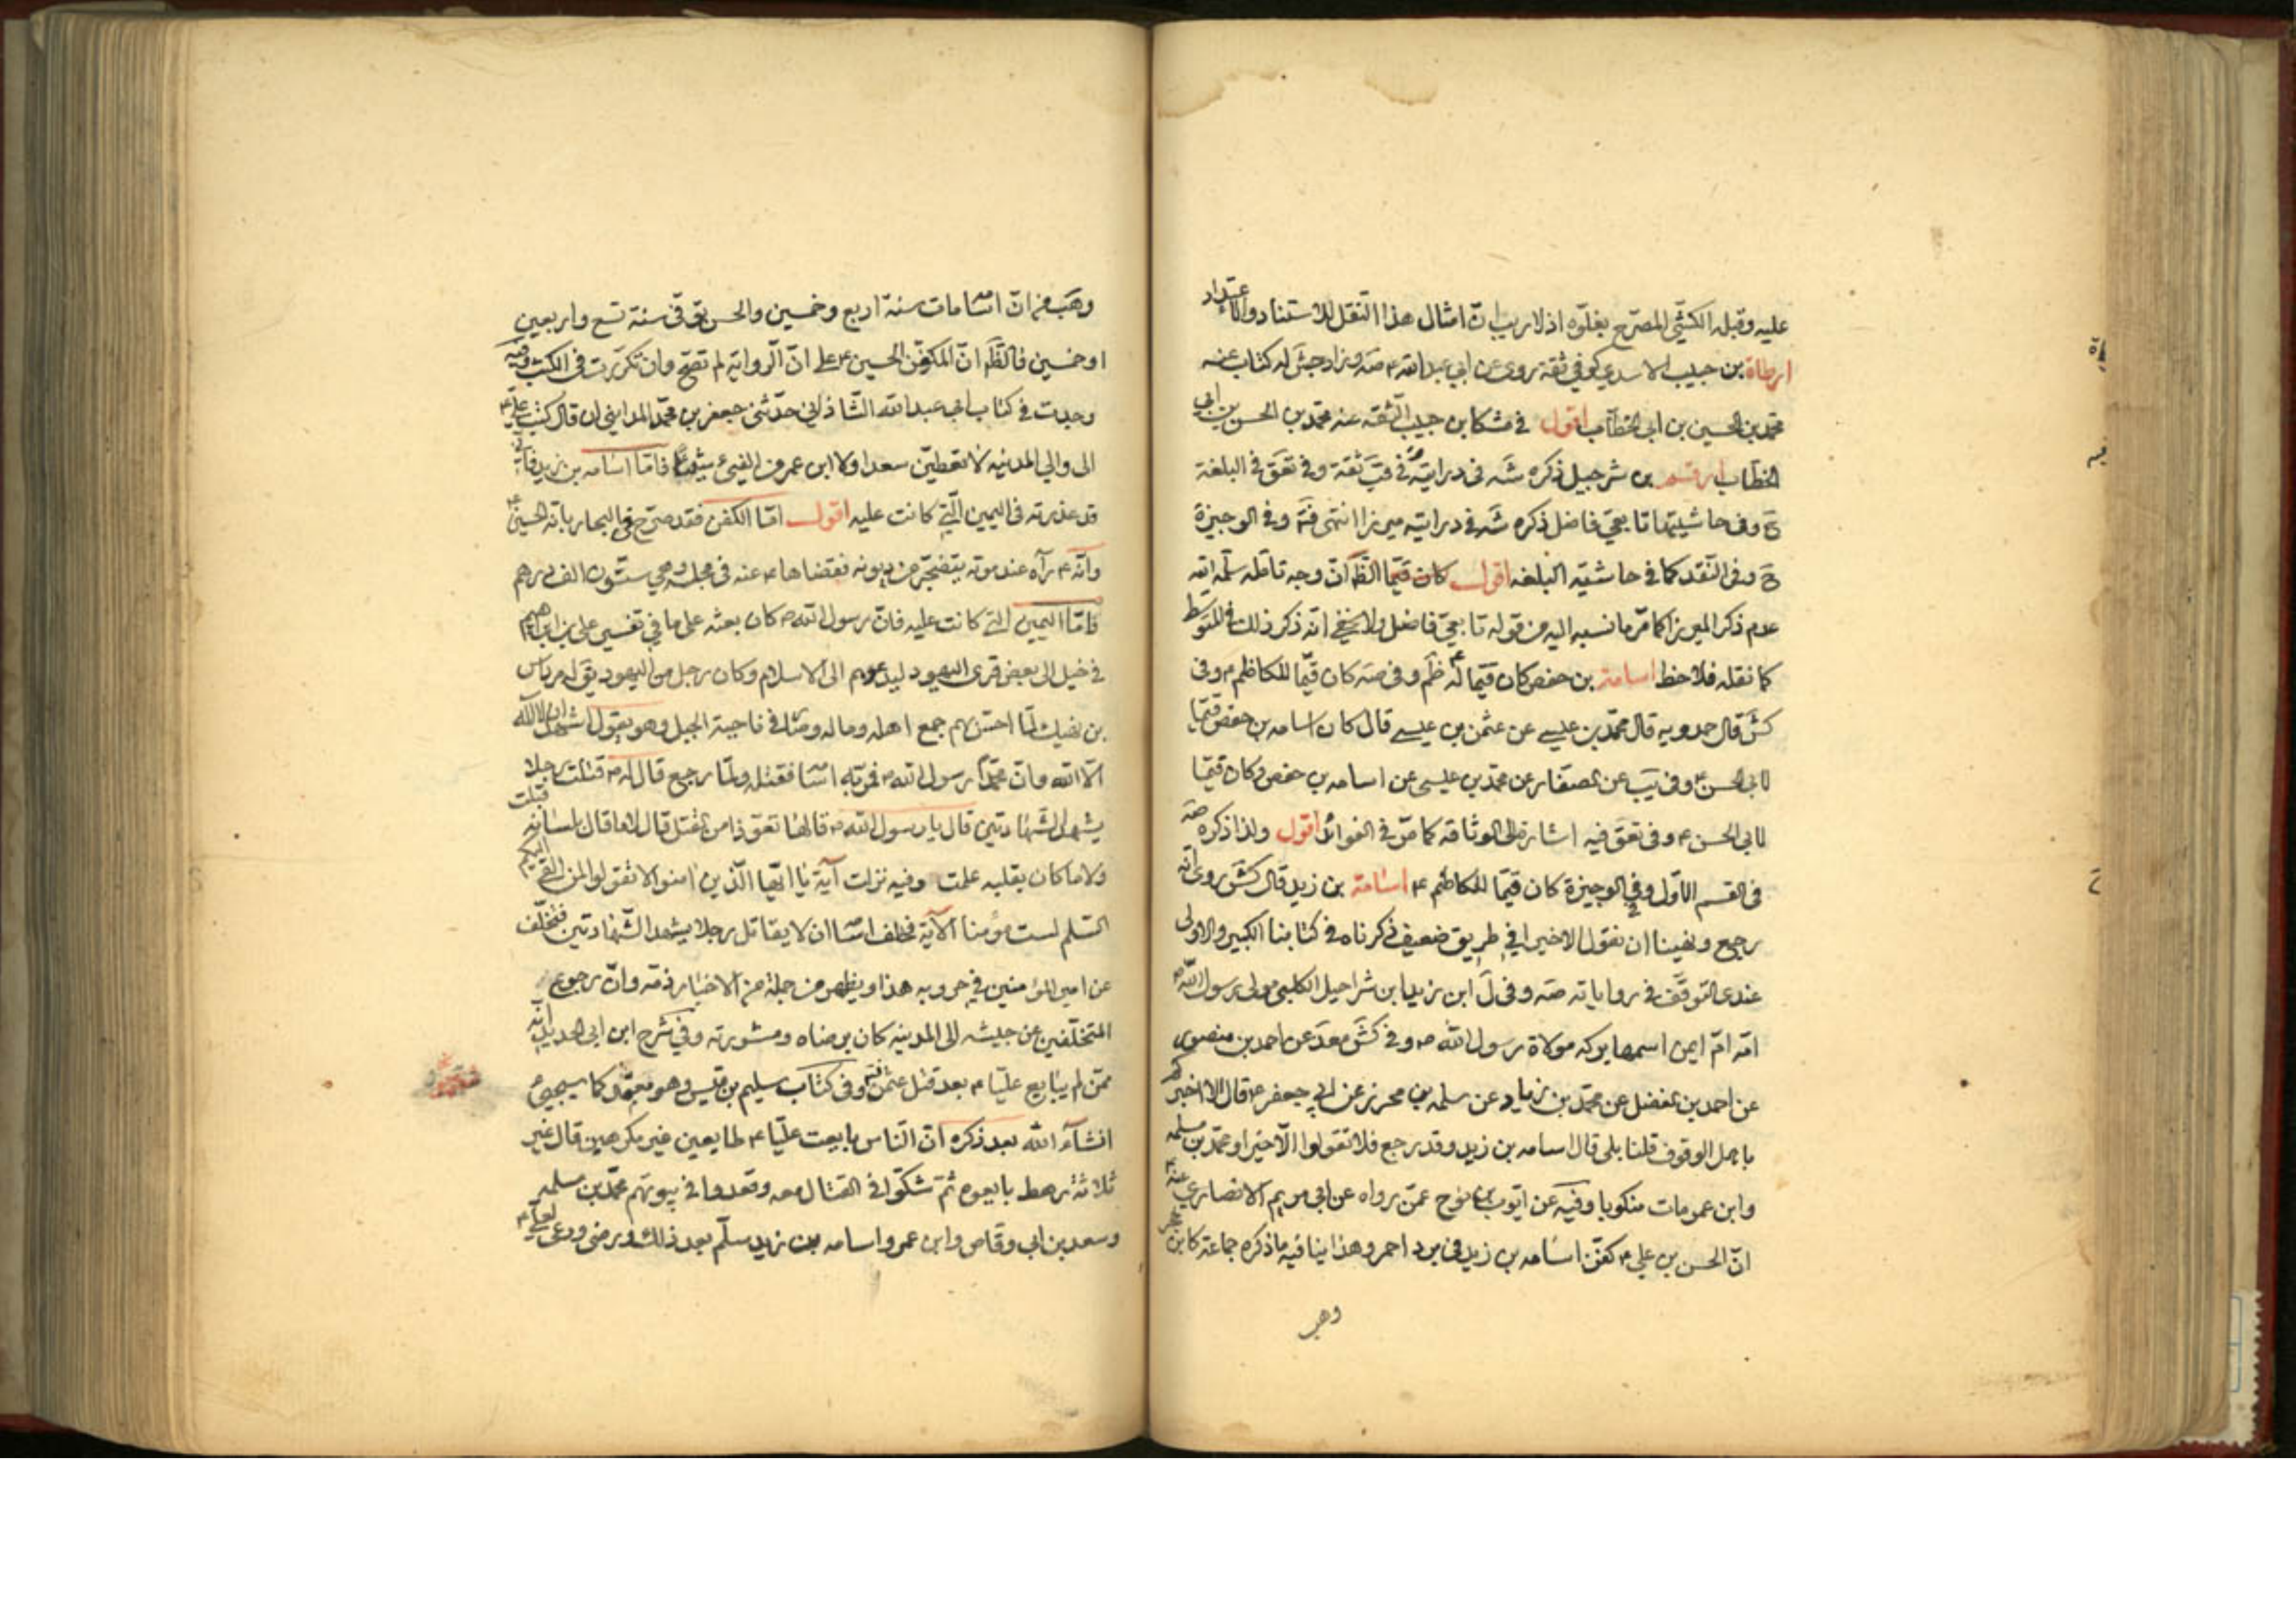 عليه وقبله الكشّي المصرّح بغلوّه اذ لا ريب انّ امثال هذا النقل للاستناد والاعتداد
ارطاة بن حبيب الاسدي كوفي ثقة روى عن ابي عبد الله ع صه وزاد جش له كتاب عنه
محمّد بن الحسين بن ابي الخطّاب اقول في مشكا بن حبيب الثقه عنه محمّد بن الحسن بن ابي
الخطاب ارقم بن شرحبيل ذكره شه في درايته في قب ثقة وفي تعق في البلغة
ح وفي حاشيتها تابعي فاضل ذكره شه في درايته ميرزا انتهى فتم وفي الوجيزة
ح وفي النقد كما في حاشية البلغه اقول كان الظ انّ وجه تامّله سلّمه الله
عدم ذكر الميرزا كما مرّ ما نسبه اليه من قوله تابعيّ فاضل ولا يخفى انّه ذكر ذلك في المتوسط
كما نقله فلاحظ اسامة بن حفص كان قيّما له ع ظم وفي صه كان قيّما للكاظم ع وفي
كش قال حمدويه قال محمّد بن عيسى عن عثمن بن عيسى قال كان اسامه بن حفص قيّما
لابي الحسن ع وفي يب عن الصفار عن محمّد بن عيسى عن اسامه بن حفص وكان قيّما
لابي الحسن ع وفي تعق فيه اشارة الى الوثاقه كما مرّ في الفوائد اقول ولذا ذكره صه
في القسم الاوّل وفي الوجيزة كان قيّما للكاظم ع اسامة بن زيد قال كش روى انّه
رجع ونهينا ان نقول الا خيرا في طريق ضعيف ذكرناه في كتابنا الكبير والاولى
عندي التوقّف في رواياته صه وفي ل ابن زيد بن شراحيل الكلبي مولى رسول الله ص
امّه امّ ايمن اسمها بركه مولاة رسول الله ص وفي كش معد عن احمد بن منصور
عن احمد بن الفضل عن محمّد بن زياد عن سلمه بن محرز عن ابي جعفر ع قال الا اخبركم
باهل الوقوف قلنا بلى قال اسامه بن زيد وقد رجع فلا تقولوا الّا خيرا ومحمّد بن مسلمه
وابن عمر مات منكوبا وفيه عن ايّوب بن نوح عمّن رواه عن ابي مريم الانصاري عنه ع
انّ الحسن بن علي ع كفّن اسامه بن زيد في برد احمر وهذا ينافيه ما ذكره جماعة كابن حجر
وهب
وهب من انّ اسامة مات سنة اربع وخمسين والحسن ع توفّي سنة تسع واربعين
او خمسين فالظّ انّ المكفّن الحسين ع على انّ الرواية لم تصحّ وان تكرّرت في الكتب وفيه
وجدت في كتاب ابي عبد الله الشاذاني حدّثني جعفر بن محمّد المدايني ان قال كتب علي ع
الى والي المدينه لا تعطينّ سعدا ولا ابن عمر من الفيء شيئا فامّا اسامه بن زيد فاني
قد عذرته في اليمين الّتي كانت عليه اقول امّا الكفن فقد صرّح في البحار بانّه الحسين ع
وانّه ع رآه عند موته يتضجّر من ديونه فقضاها ع عنه في مجلسه وهي ستّون الف درهم
فامّا اليمين التي كانت عليه فانّ رسول الله ص كان بعثه على ما في تفسير علي بن ابراهيم
في خيل الى بعض قرى اليهود ليدعوهم الى الاسلام وكان رجل من اليهود يق له مرداس
بن نهيك لمّا احسّ بهم جمع اهله وماله وصار في ناحية الجبل وهو يقول اشهد ان لا اله
الّا الله وانّ محمّدا رسول الله ص فمرّ به اسامة فقتله ولمّا رجع قال له ص قتلت رجلا
يشهد الشهادتين قال يا رسول الله ص قالها تعوّذا من القتل قال ص لا ما قال بلسانه قبلت
ولا ما كان بقلبه علمت وفيه نزلت آية يا ايّها الّذين امنوا لا تقولوا لمن القى اليكم
السّلم لست مؤمنا الآية فحلف اسامة ان لا يقاتل رجلا يشهد الشّهادتين فتخلّف
عن امير المؤمنين في حروبه هذا ويظهر من جملة من الاخبار ذمّه وانّ رجوع
المتخلّفين عن جيشه الى المدينه كان برضاه ومشورته وفي شرح ابن ابي الحديد انّه
ممّن لم يبايع عليّا ع بعد قتل عثمن وفي كتاب سليم بن قيس وهو معتمد كما سيجيء
انشاء الله بعد ذكره انّ النّاس بايعت عليّا ع طايعين غير مكرهين قال غير
ثلاثة رهط بايعوه ثمّ شكّوا في القتال معه وقعدوا في بيوتهم محمّد بن مسلمه
وسعد بن ابي وقاص وابن عمر واسامه بن زيد سلّم بعد ذلك ورضى ودعى لعلي ع